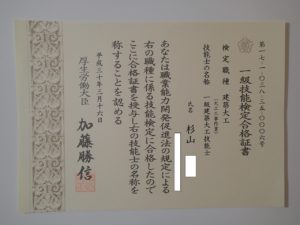 第一七-一-〇三八-三五-〇〇〇六号
一級技能検定合格証書
検定職種 建築大工
(大工工事作業)
技能士の名称 一級建築大工技能士
氏名 杉山
あなたは職業能力開発促進法の規定による
右の職種に係る技能検定に合格したので
ここに合格証書を授与し右の技能士の名称を
称することを認める
平成三十年三月十六日
厚生労働大臣 加藤勝信